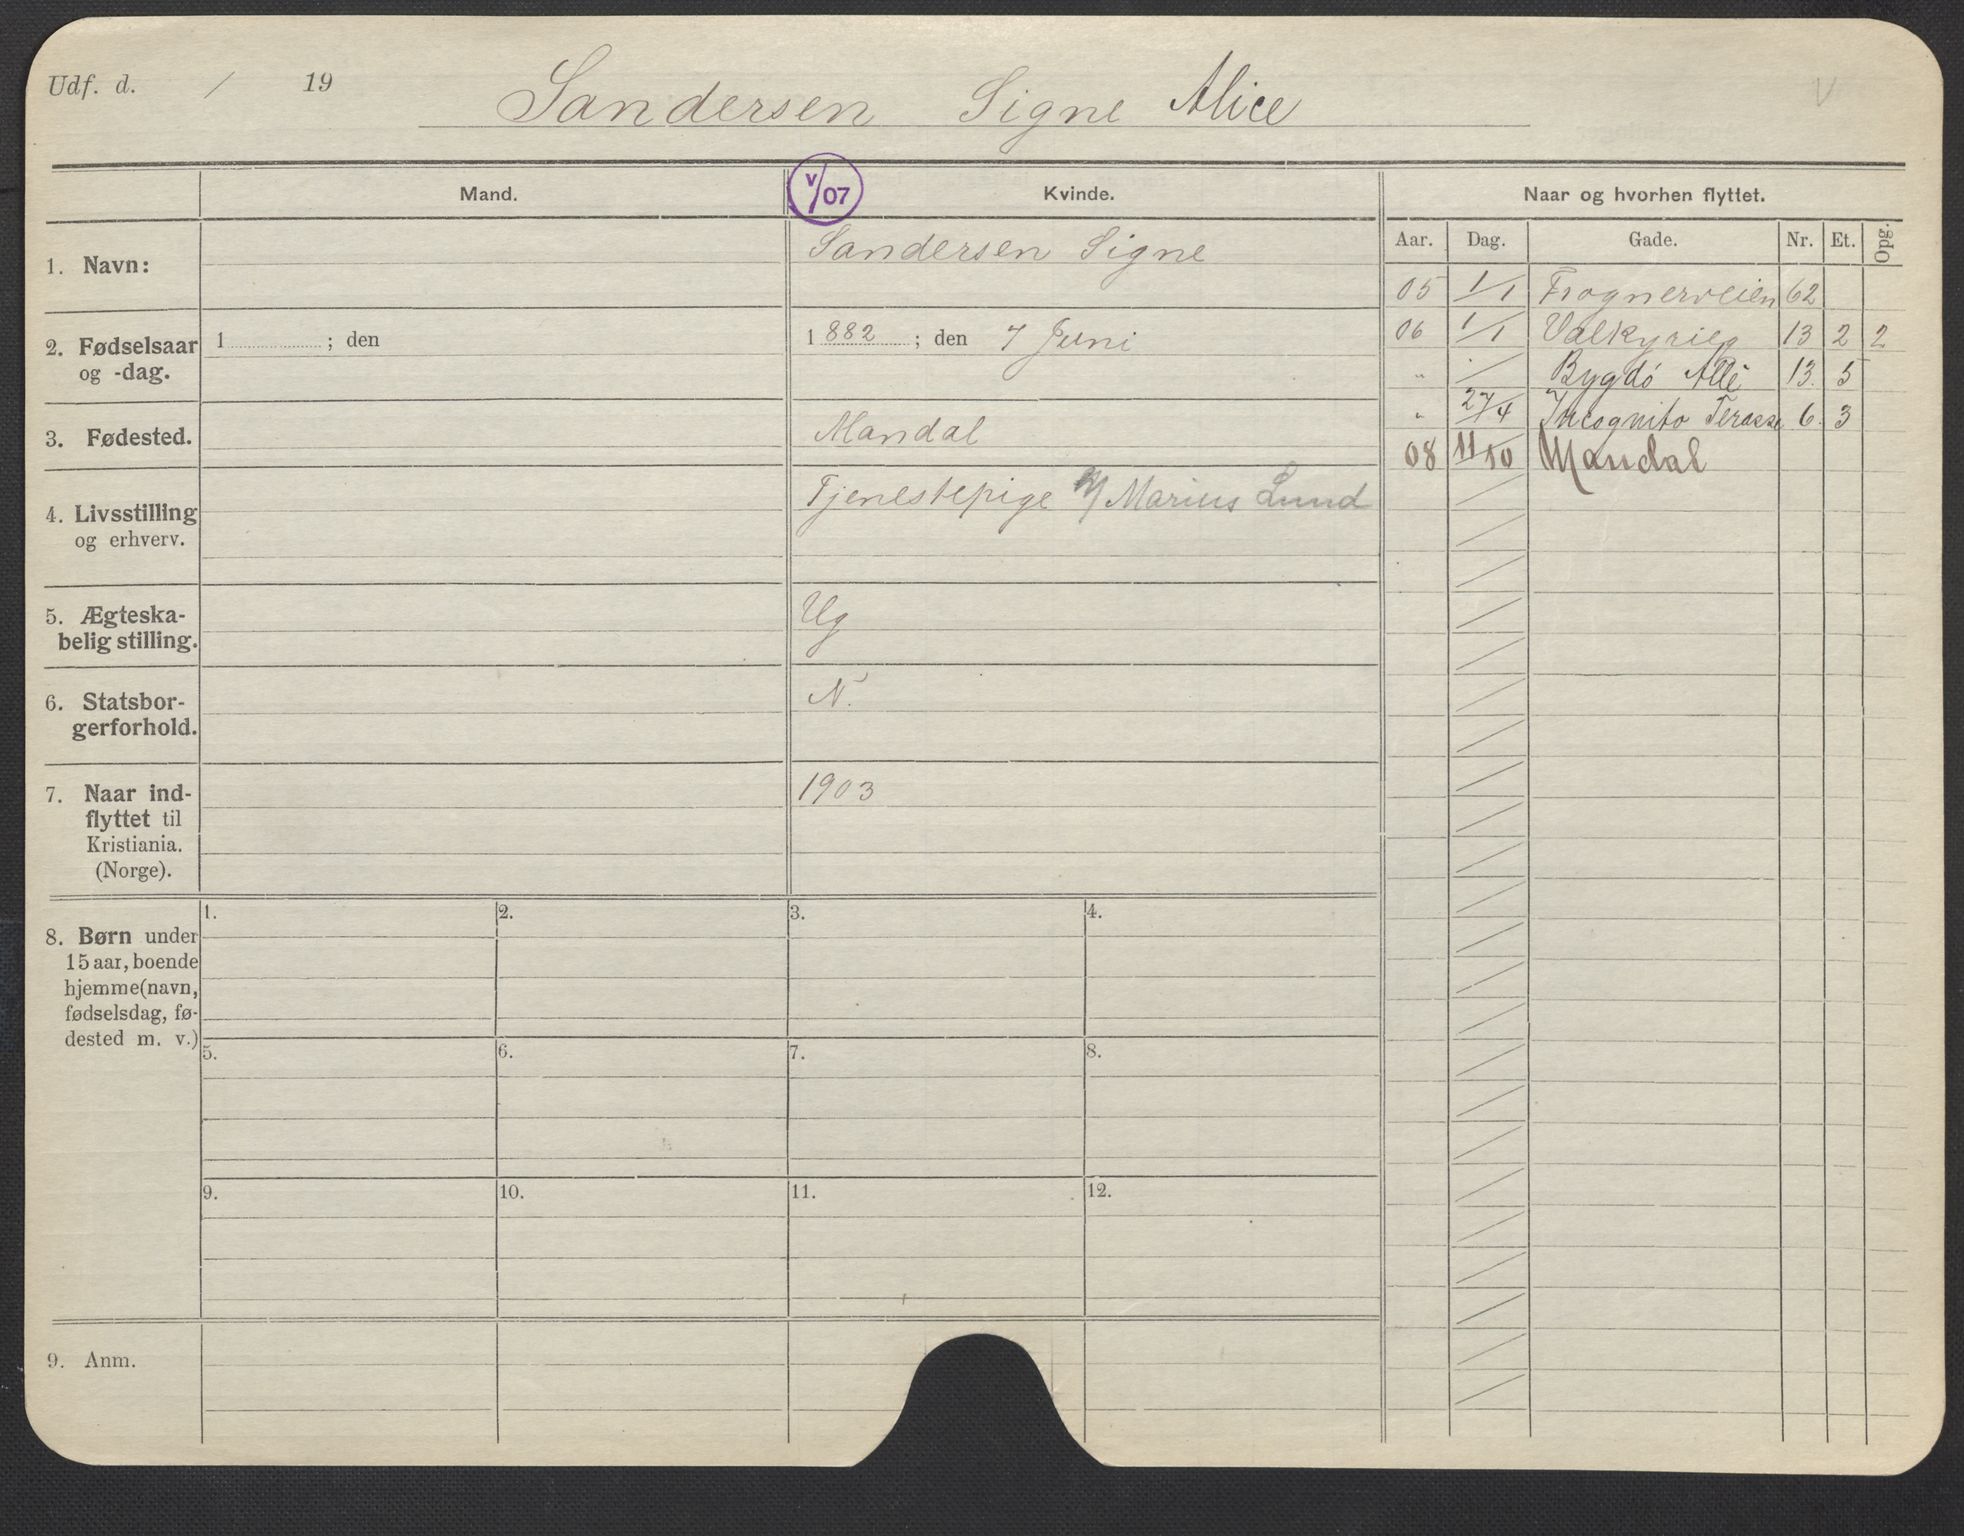 Udf. d. / 19
Sandersen Signe Alice
V
Mand.
V/07
Kvinde.
Naar og hvorhen flyttet.
Aar. Dag. Gade. Nr. Et. Opg.
1. Navn:
Sandersen Signe
2. Fødselsaar
og -dag.
1 ; den
1 882 ; den 7 Juni
3. Fødested.
Mandal
4. Livsstilling
og erhverv.
Tjenestepige Marius Lund
5. Ægteska-
belig stilling.
Ug
6. Statsbor-
gerforhold.
N.
7. Naar ind-
flyttet til
Kristiania.
(Norge).
1903
05 1/1 Frognerveien 62
06 1/1 Valkyrieg 13 2 2
" / Bygdö Allé 13. 5
" 27/4 Incognito Terasse 6. 3
08 11/10 Mandal
8. Børn under
15 aar, boende
hjemme(navn,
fødselsdag, fø-
dested m. v.)
1. 2. 3. 4.
5. 6. 7. 8.
9. 10. 11. 12.
9. Anm.